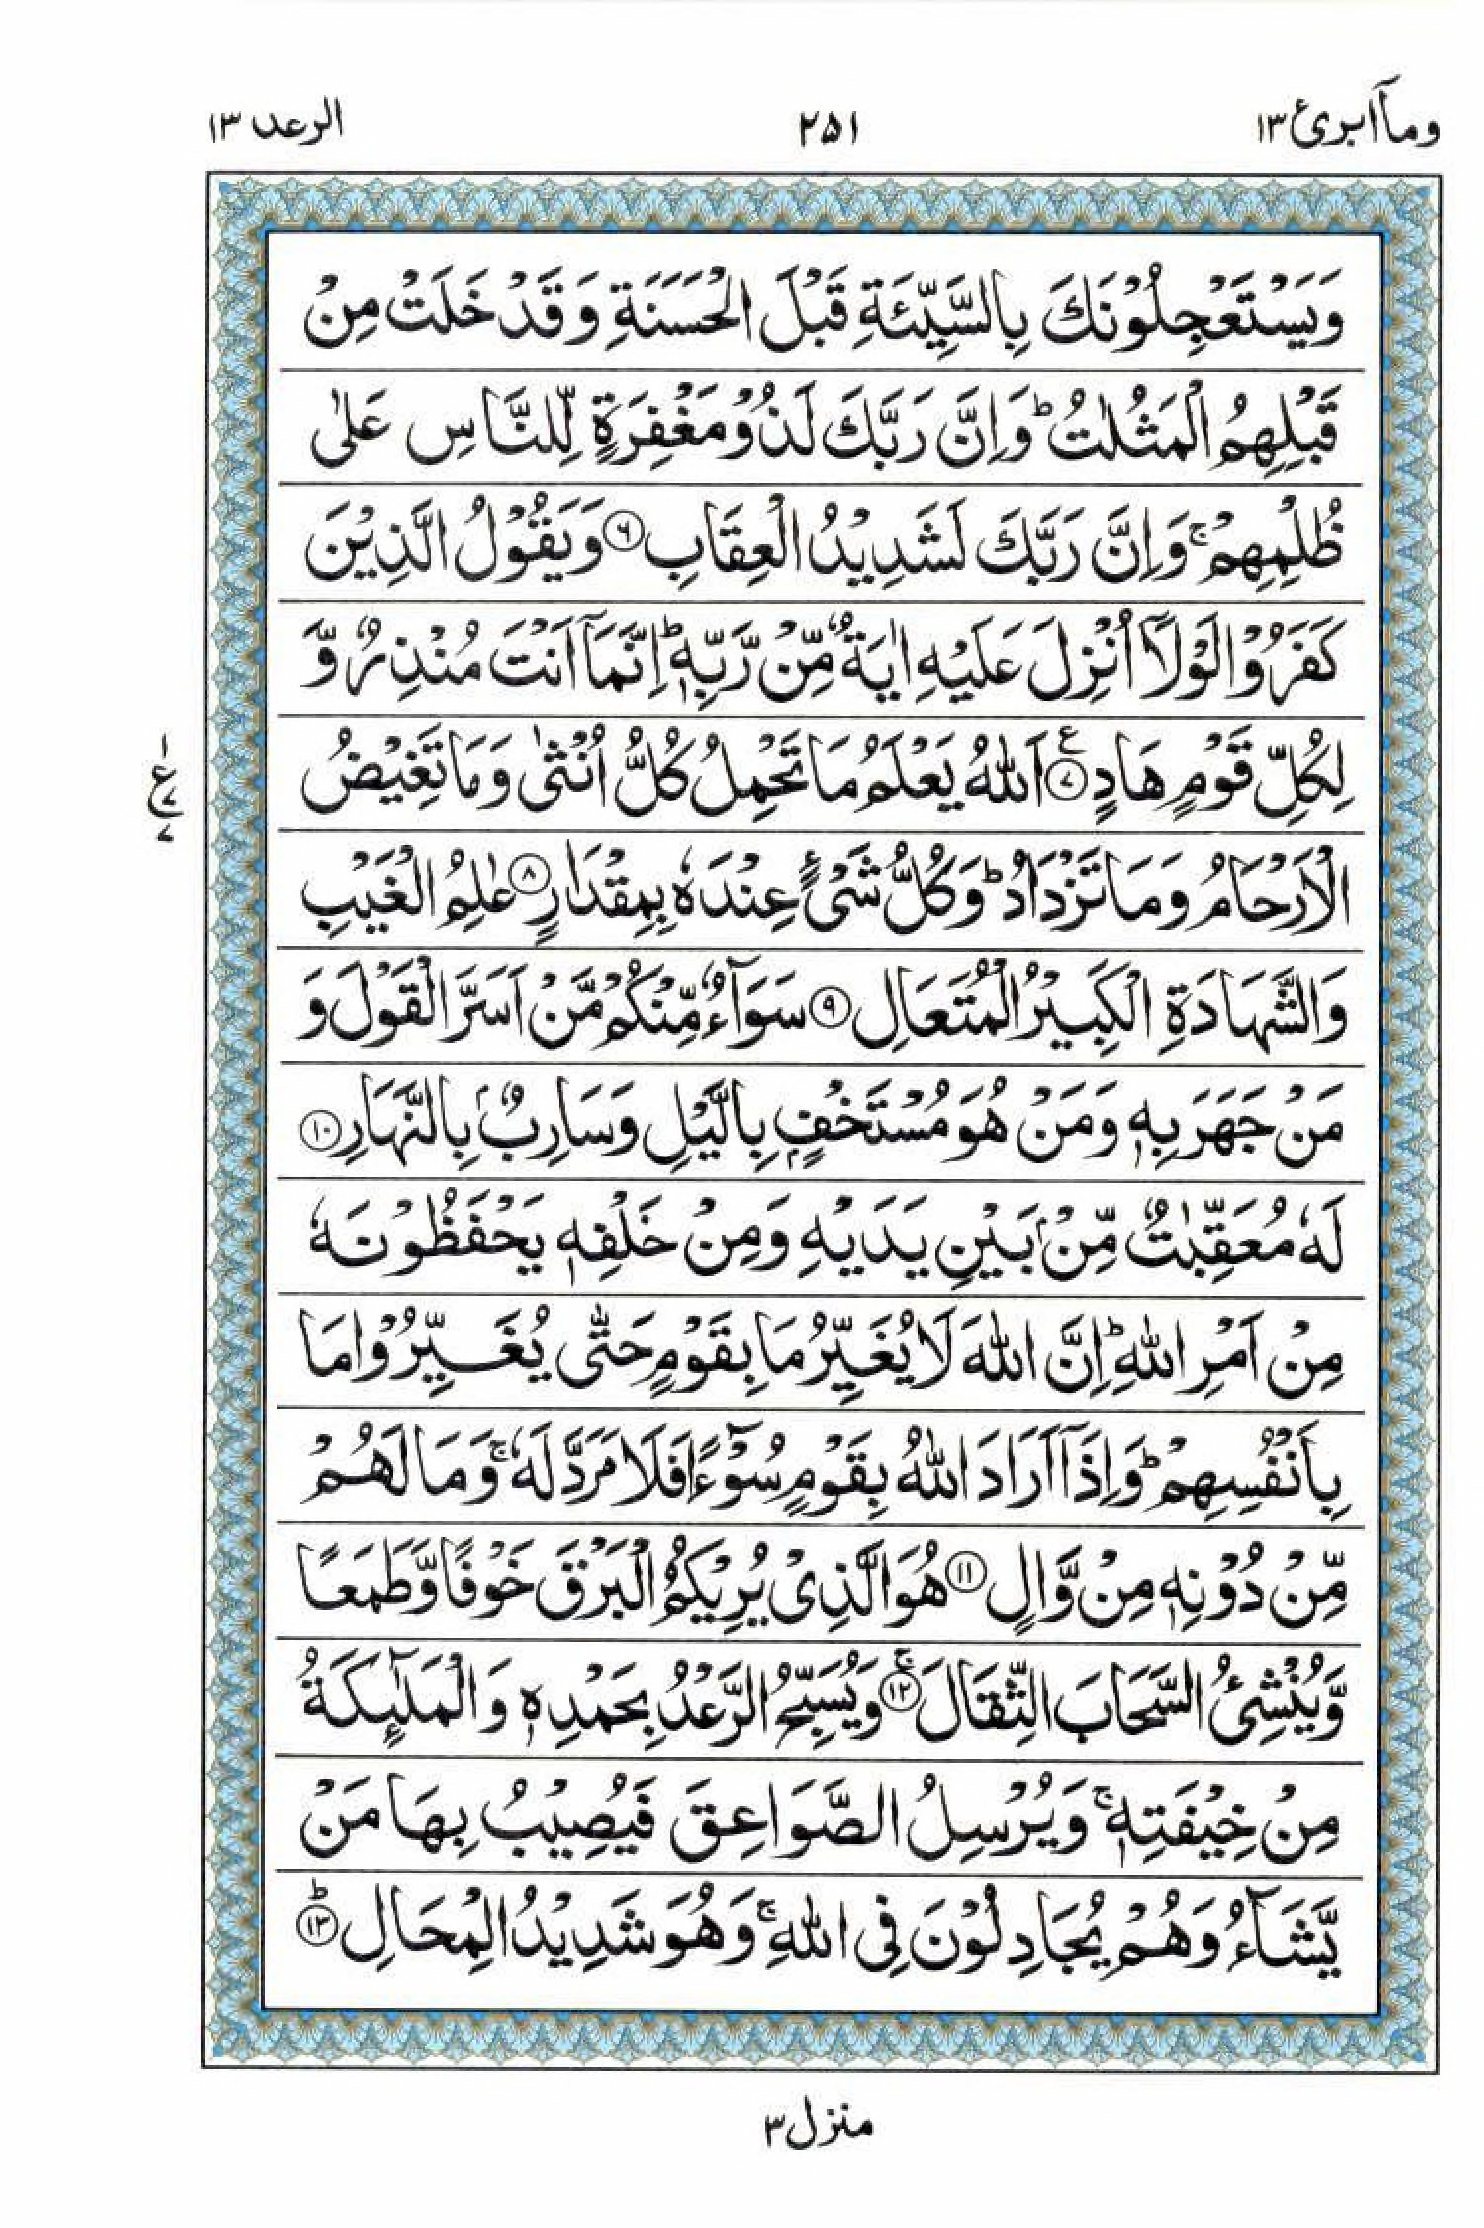 وماۤ ابرئ ١٣
٢٥١
الرعد ١٣
وَيَسْتَعْجِلُوْنَكَ بِالسَّيِّئَةِ قَبْلَ الْحَسَنَةِ وَقَدْ خَلَتْ مِنْ
قَبْلِهِمُ الْمَثُلٰتُ ؕ وَاِنَّ رَبَّكَ لَذُوْ مَغْفِرَةٍ لِّلنَّاسِ عَلٰى
ظُلْمِهِمْ ۚ وَاِنَّ رَبَّكَ لَشَدِيْدُ الْعِقَابِ ۝٦ وَيَقُوْلُ الَّذِيْنَ
كَفَرُوْا لَوْلَاۤ اُنْزِلَ عَلَيْهِ اٰيَةٌ مِّنْ رَّبِّهٖ ؕ اِنَّمَاۤ اَنْتَ مُنْذِرٌ وَّ
لِكُلِّ قَوْمٍ هَادٍ ۝٧ ع اَللّٰهُ يَعْلَمُ مَا تَحْمِلُ كُلُّ اُنْثٰى وَمَا تَغِيْضُ
١ ع ٧ ٧
الْاَرْحَامُ وَمَا تَزْدَادُ ؕ وَكُلُّ شَىْءٍ عِنْدَهٗ بِمِقْدَارٍ ۝٨ عٰلِمُ الْغَيْبِ
وَالشَّهَادَةِ الْكَبِيْرُ الْمُتَعَالِ ۝٩ سَوَآءٌ مِّنْكُمْ مَّنْ اَسَرَّ الْقَوْلَ وَ
مَنْ جَهَرَ بِهٖ وَمَنْ هُوَ مُسْتَخْفٍۭ بِالَّيْلِ وَسَارِبٌۢ بِالنَّهَارِ ۝١٠
لَهٗ مُعَقِّبٰتٌ مِّنْۢ بَيْنِ يَدَيْهِ وَمِنْ خَلْفِهٖ يَحْفَظُوْنَهٗ
مِنْ اَمْرِ اللّٰهِ ؕ اِنَّ اللّٰهَ لَا يُغَيِّرُ مَا بِقَوْمٍ حَتّٰى يُغَيِّرُوْا مَا
بِاَنْفُسِهِمْ ؕ وَاِذَاۤ اَرَادَ اللّٰهُ بِقَوْمٍ سُوْٓءًا فَلَا مَرَدَّ لَهٗ ۚ وَمَا لَهُمْ
مِّنْ دُوْنِهٖ مِنْ وَّالٍ ۝١١ هُوَ الَّذِىْ يُرِيْكُمُ الْبَرْقَ خَوْفًا وَّطَمَعًا
وَّيُنْشِئُ السَّحَابَ الثِّقَالَ ۝١٢ ۚ وَيُسَبِّحُ الرَّعْدُ بِحَمْدِهٖ وَالْمَلٰٓئِكَةُ
مِنْ خِيْفَتِهٖ ۚ وَيُرْسِلُ الصَّوَاعِقَ فَيُصِيْبُ بِهَا مَنْ
يَّشَآءُ وَهُمْ يُجَادِلُوْنَ فِى اللّٰهِ ۚ وَهُوَ شَدِيْدُ الْمِحَالِ ۝١٣ ؕ
منزل ٣